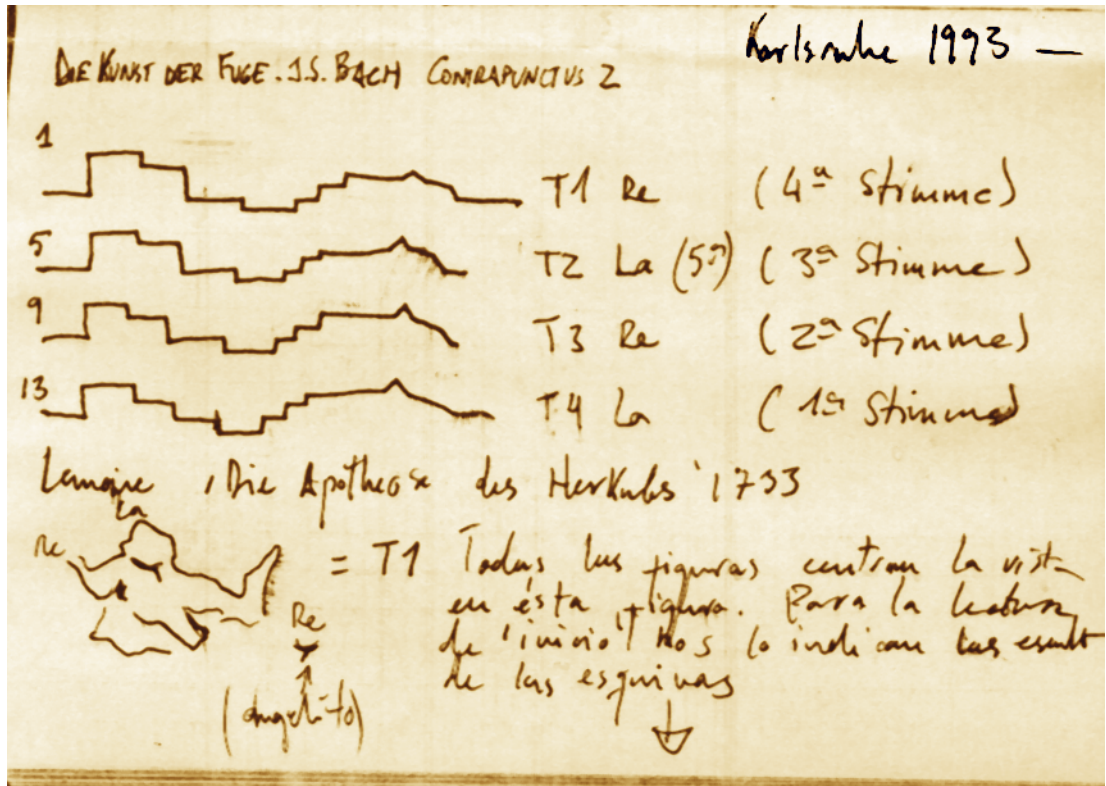 Karlsruhe 1993 —
DIE KUNST DER FUGE. J.S. BACH CONTRAPUNCTUS 2
1 T1 Re (4ª Stimme)
5 T2 La (5ª) (3ª Stimme)
9 T3 Re (2ª Stimme)
13 T4 La (1ª Stimme)
Lemoine, Die Apotheose des Herkules' 1733
La
Re
= T1 Todas las figuras centran la vista
en ésta figura. Para la lectura
de "inicio" nos lo indican las escult
de las esquinas
Re
(angelito)